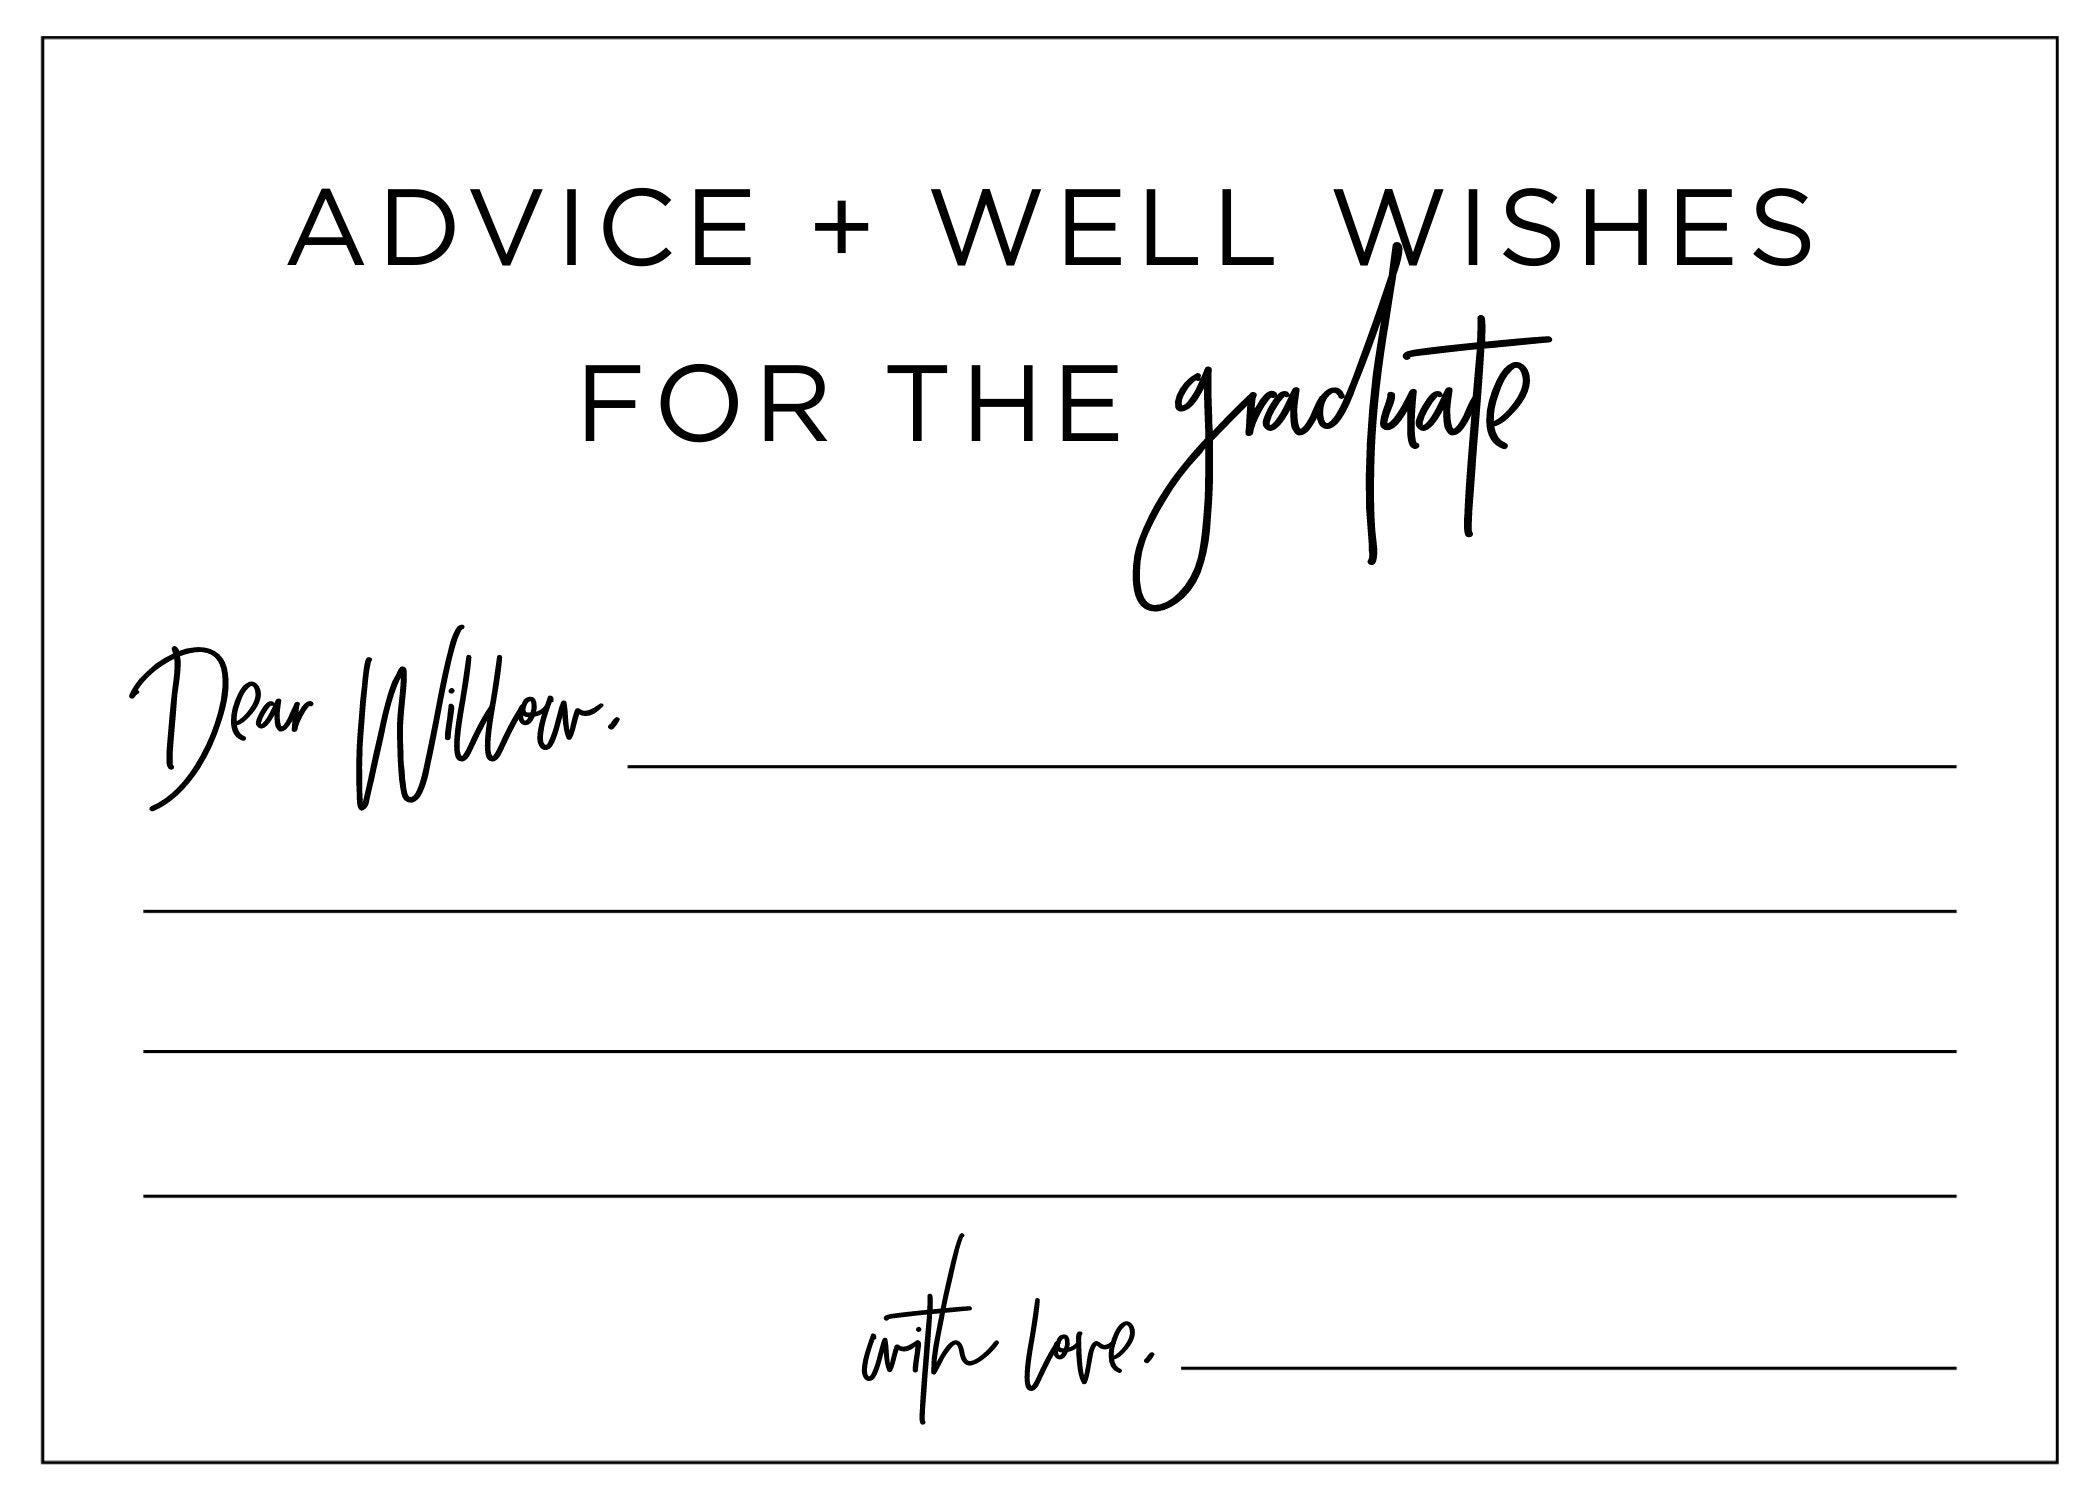 ADVICE + WELL WISHES
FOR THE graduate
Dear Willow,
with love,